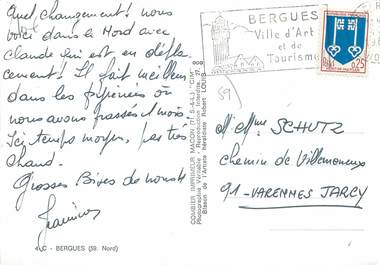 Quel changement ! nous
voici dans le Nord avec
Claude qui est en dépla-
cement ! Il fait meilleur
dans les pyrénées où
nous avons passés 1 mois.
Ici temps moyen, pas très
chaud.
Grosses Bises de nous 4
4 C - BERGUES (59. Nord)
COMBIER IMPRIMEUR MACON (71 S.-&-L.) "CIM"
Photographie Véritable - Reproduction Interdite.
Blason de l'Artiste héraldiste Robert LOUIS
BERGUES
Ville d'Art
et de
Tourisme
0,25
59
M. et Mme SCHUTZ
Chemin de Villemeneux
91-VARENNES JARCY